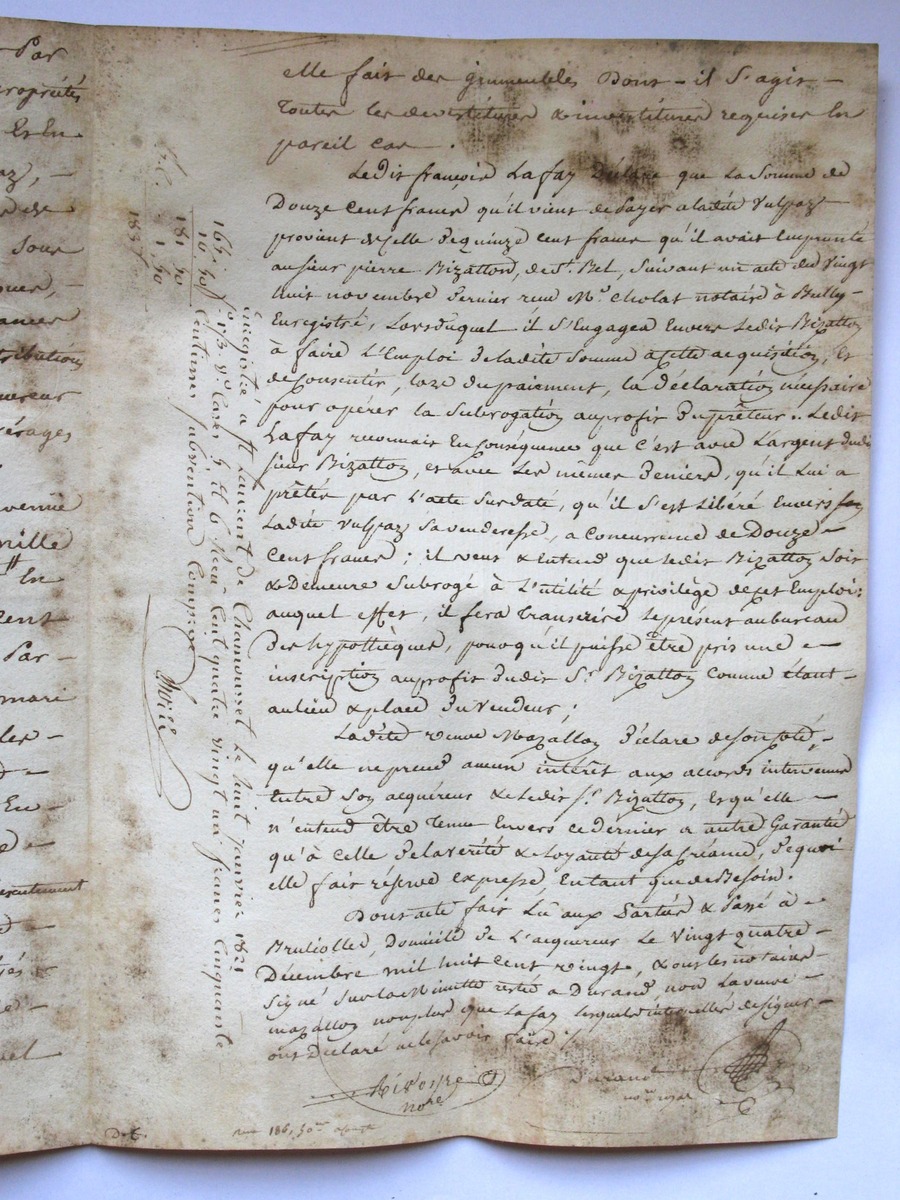 Par
propriétés
Et En
az, –
sous
quer, –
tribution
quereur
érages
mille
En
cent
Par –
mari
En –
elle fait des immeubles Dont – il S'agit –
Toutes les devestitures & investitures requises En
pareil cas – .
Ledit françois Lafay Déclare que La Somme de
Douze Cent francs qu'il vient de Payer a ladite Vulpaz
provient de Celle De quinze Cent francs qu'il avait Emprunté
au sieur pierre Bizallon, de St. Bel, Suivant un acte du Vingt
huit novembre Dernier reçu Me. Cholat notaire à Bully
Enregistré, Lors duquel il S'Engagea Envers Ledit Bizallon
à faire L'Emploi De ladite Somme a Cette acquisition, Et
de Consentir, lors du paiement, la Déclaration nécessaire
pour opérer la Subrogation au profit Du prêteur .. Ledit
Lafay reconnait En Conséquence que C'est avec L'argent dudit
sieur Bizallon, et avec Les mêmes Deniers, qu'il Lui a
prêtés par L'acte Sus daté, qu'il S'est Libéré Envers
Ladite Vulpaz Sa venderesse, a Concurrence de Douze –
Cent francs ; il veut & Entend que ledit Bizallon Soit
& Demeure Subrogé à L'utilité & privilège de Cet Emploi :
auquel effet, il fera Transcrire le présent au bureau
Des hypothèques, pour qu'il puisse être pris une –
inscription au profit Dudit Sr. Bizallon Comme étant –
au lieu & place Du Vendeur ;
Ladite veuve Mazallon Déclare de Son Coté, –
qu'elle ne prend aucun intérêt aux accords intervenus
Entre Son acquéreur & Ledit Sr. Bizallon, Et qu'elle –
n'entend être Tenue Envers ce Dernier a autre Garantie
qu'à Celle De la vérité & loyauté de Sa Créance, De quoi
elle fait réserve expresse, En tant que de Besoin.
Dont acte fait Lu aux Parties & Passé à –
Brulliolles, Domicile De L'acquereur Le Vingt quatre –
Décembre mil huit Cent vingt, & ont les notaires
Signé Sur la Minutte restée a Durand, non La veuve –
mazallon non plus que Lafay Lesquels interpellés de Signer –
ont Déclaré ne le Savoir faire ./.
notre
Durand
nore royal
Enregistré a St Laurent de Chamousset Le huit Janvier 1821
fo 173. Vo. Cases 5 et 6 Reçu Cent quatre Vingt un francs Cinquante
Centimes Subvention Comprise
165.
16 50
181 50
1 50
183
D.E.
186, 50